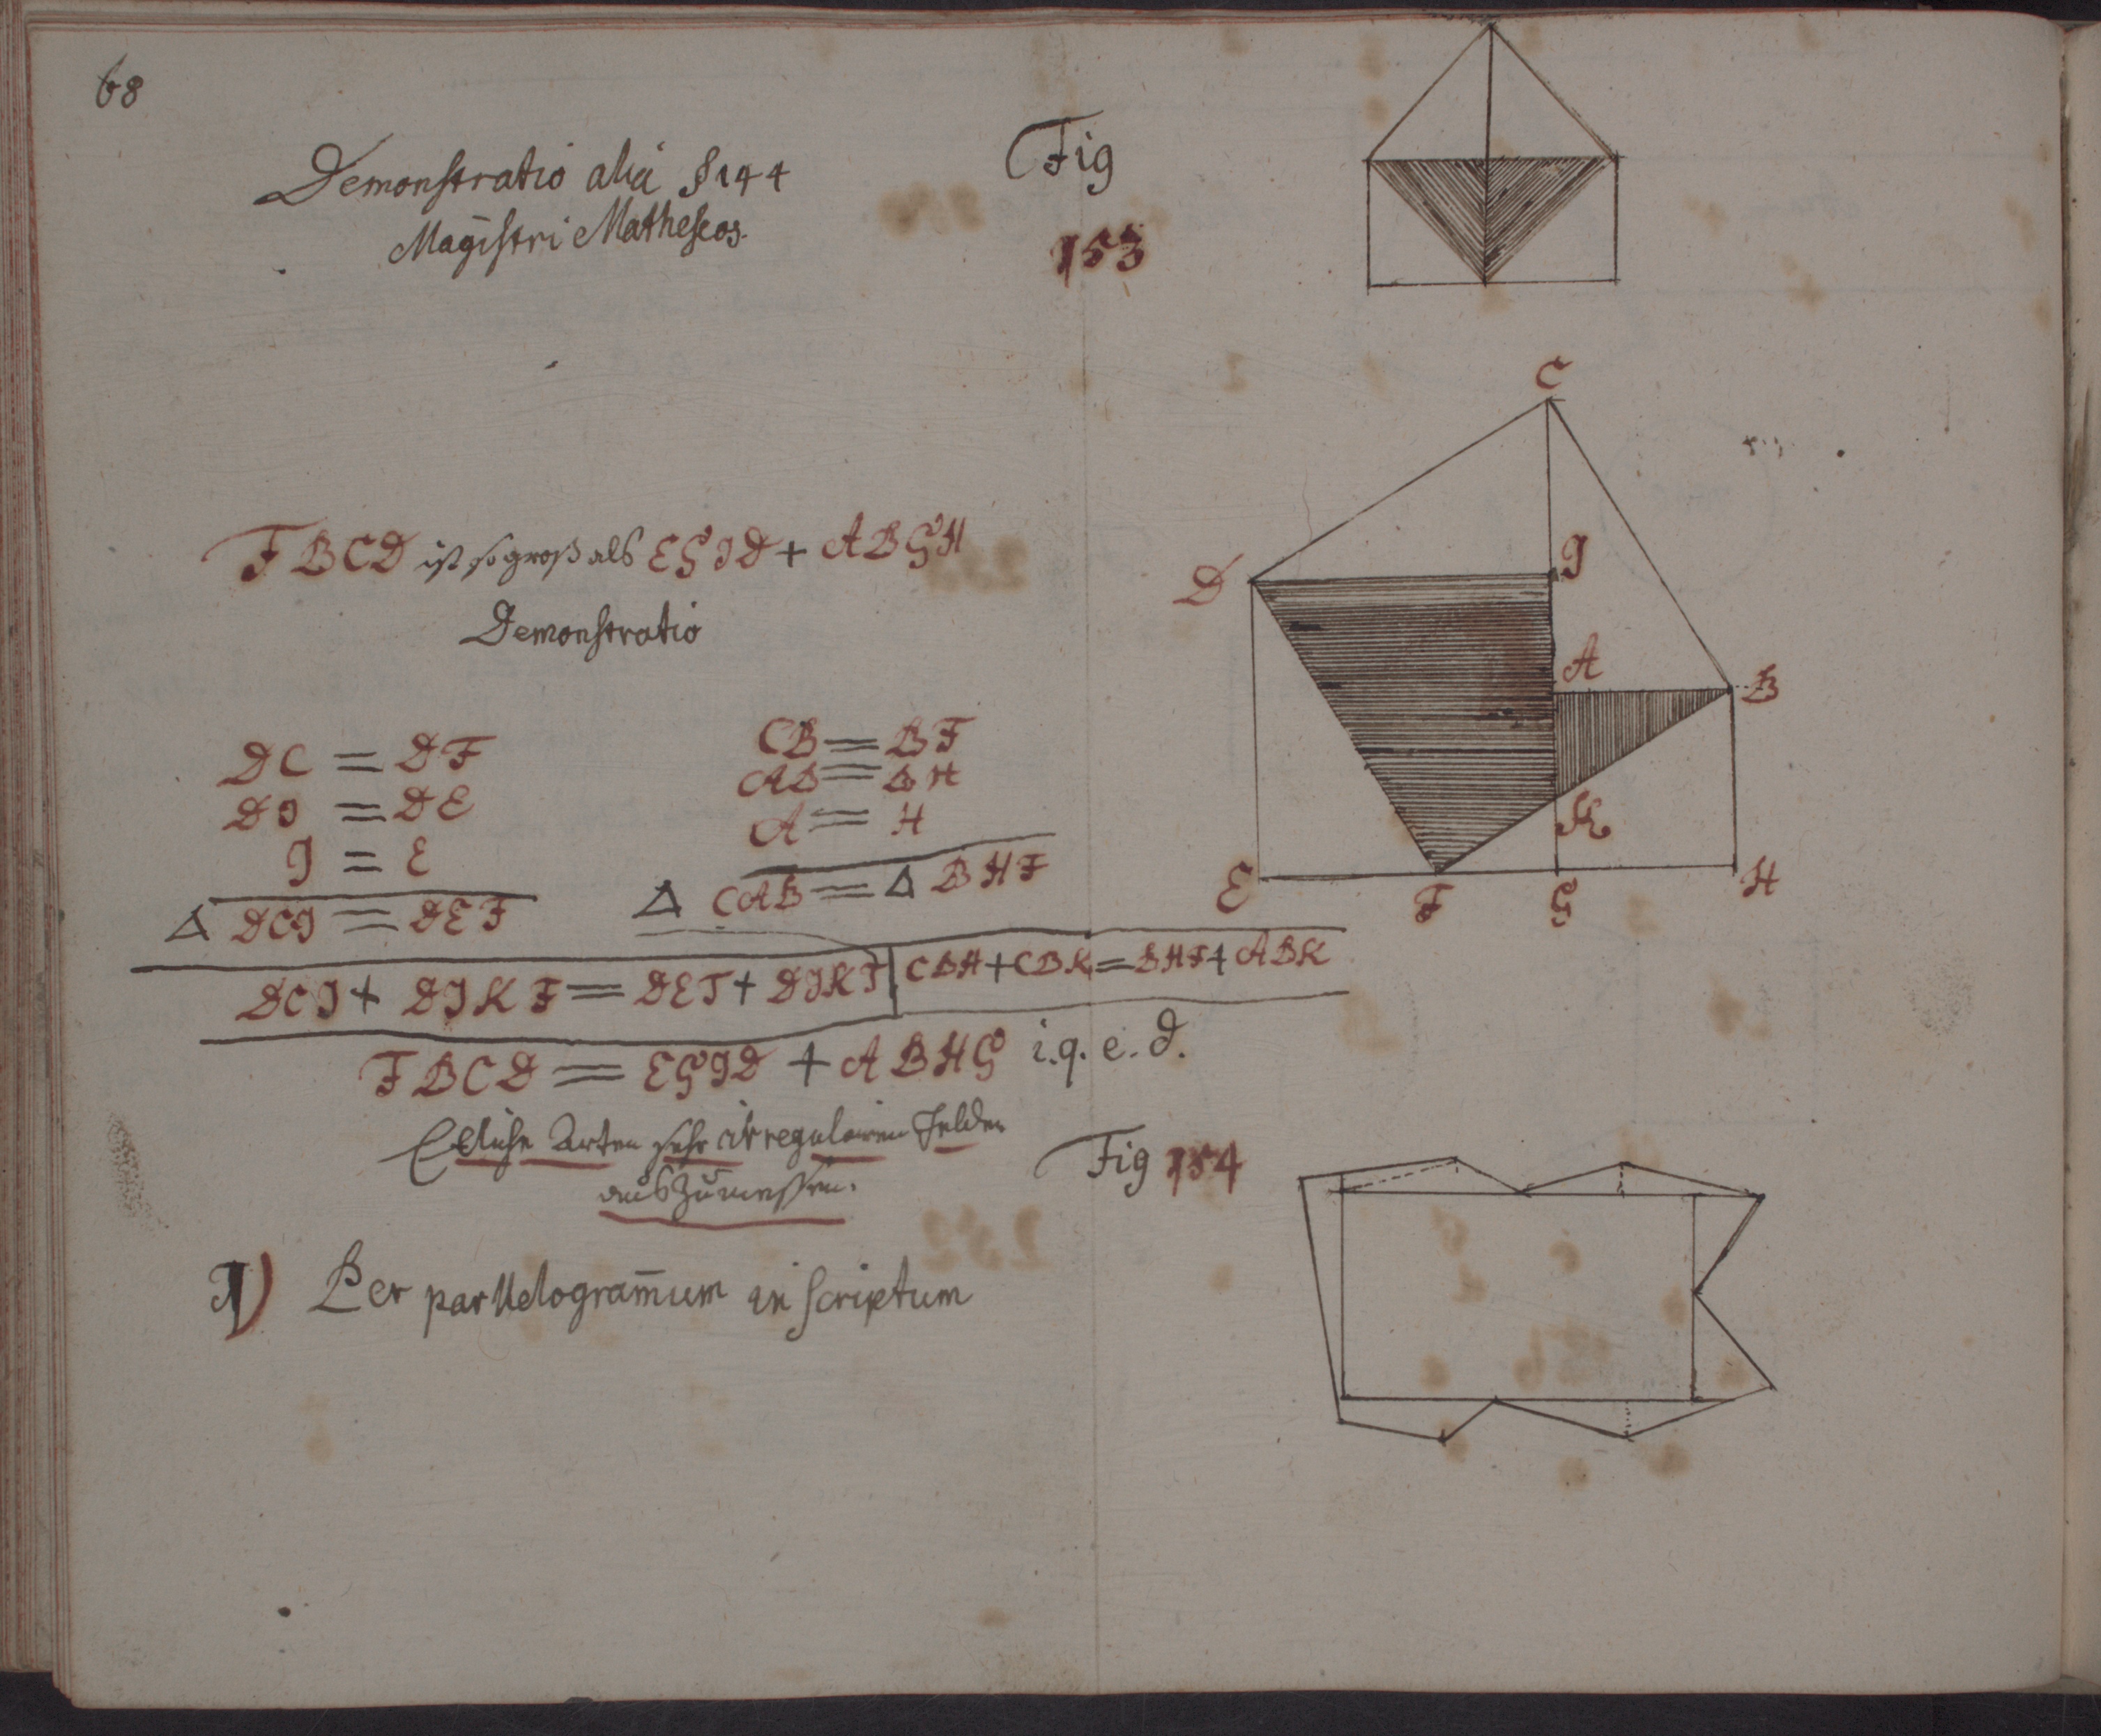 68
Demonstratio alia § 144
Magistri Matheseos.
Fig
153
FBCD ist so groß als EGID + ABGH
Demonstratio
DC = DF
DI = DE
I = E
Δ DCI = DEF
CB = BF
AB = BH
A = H
Δ CAB = Δ BHF
DCI + DIKF = DEF + DIKF | CBA + CBK = BHF + ABK
FBCD = EGID + ABHG i.q.e.d.
Etliche Arten sehr irregulairen Felder
auszumessen.
Fig 154
I) Per parllelogram̄um inscriptum
C
D
I
A
B
K
E
F
G
H